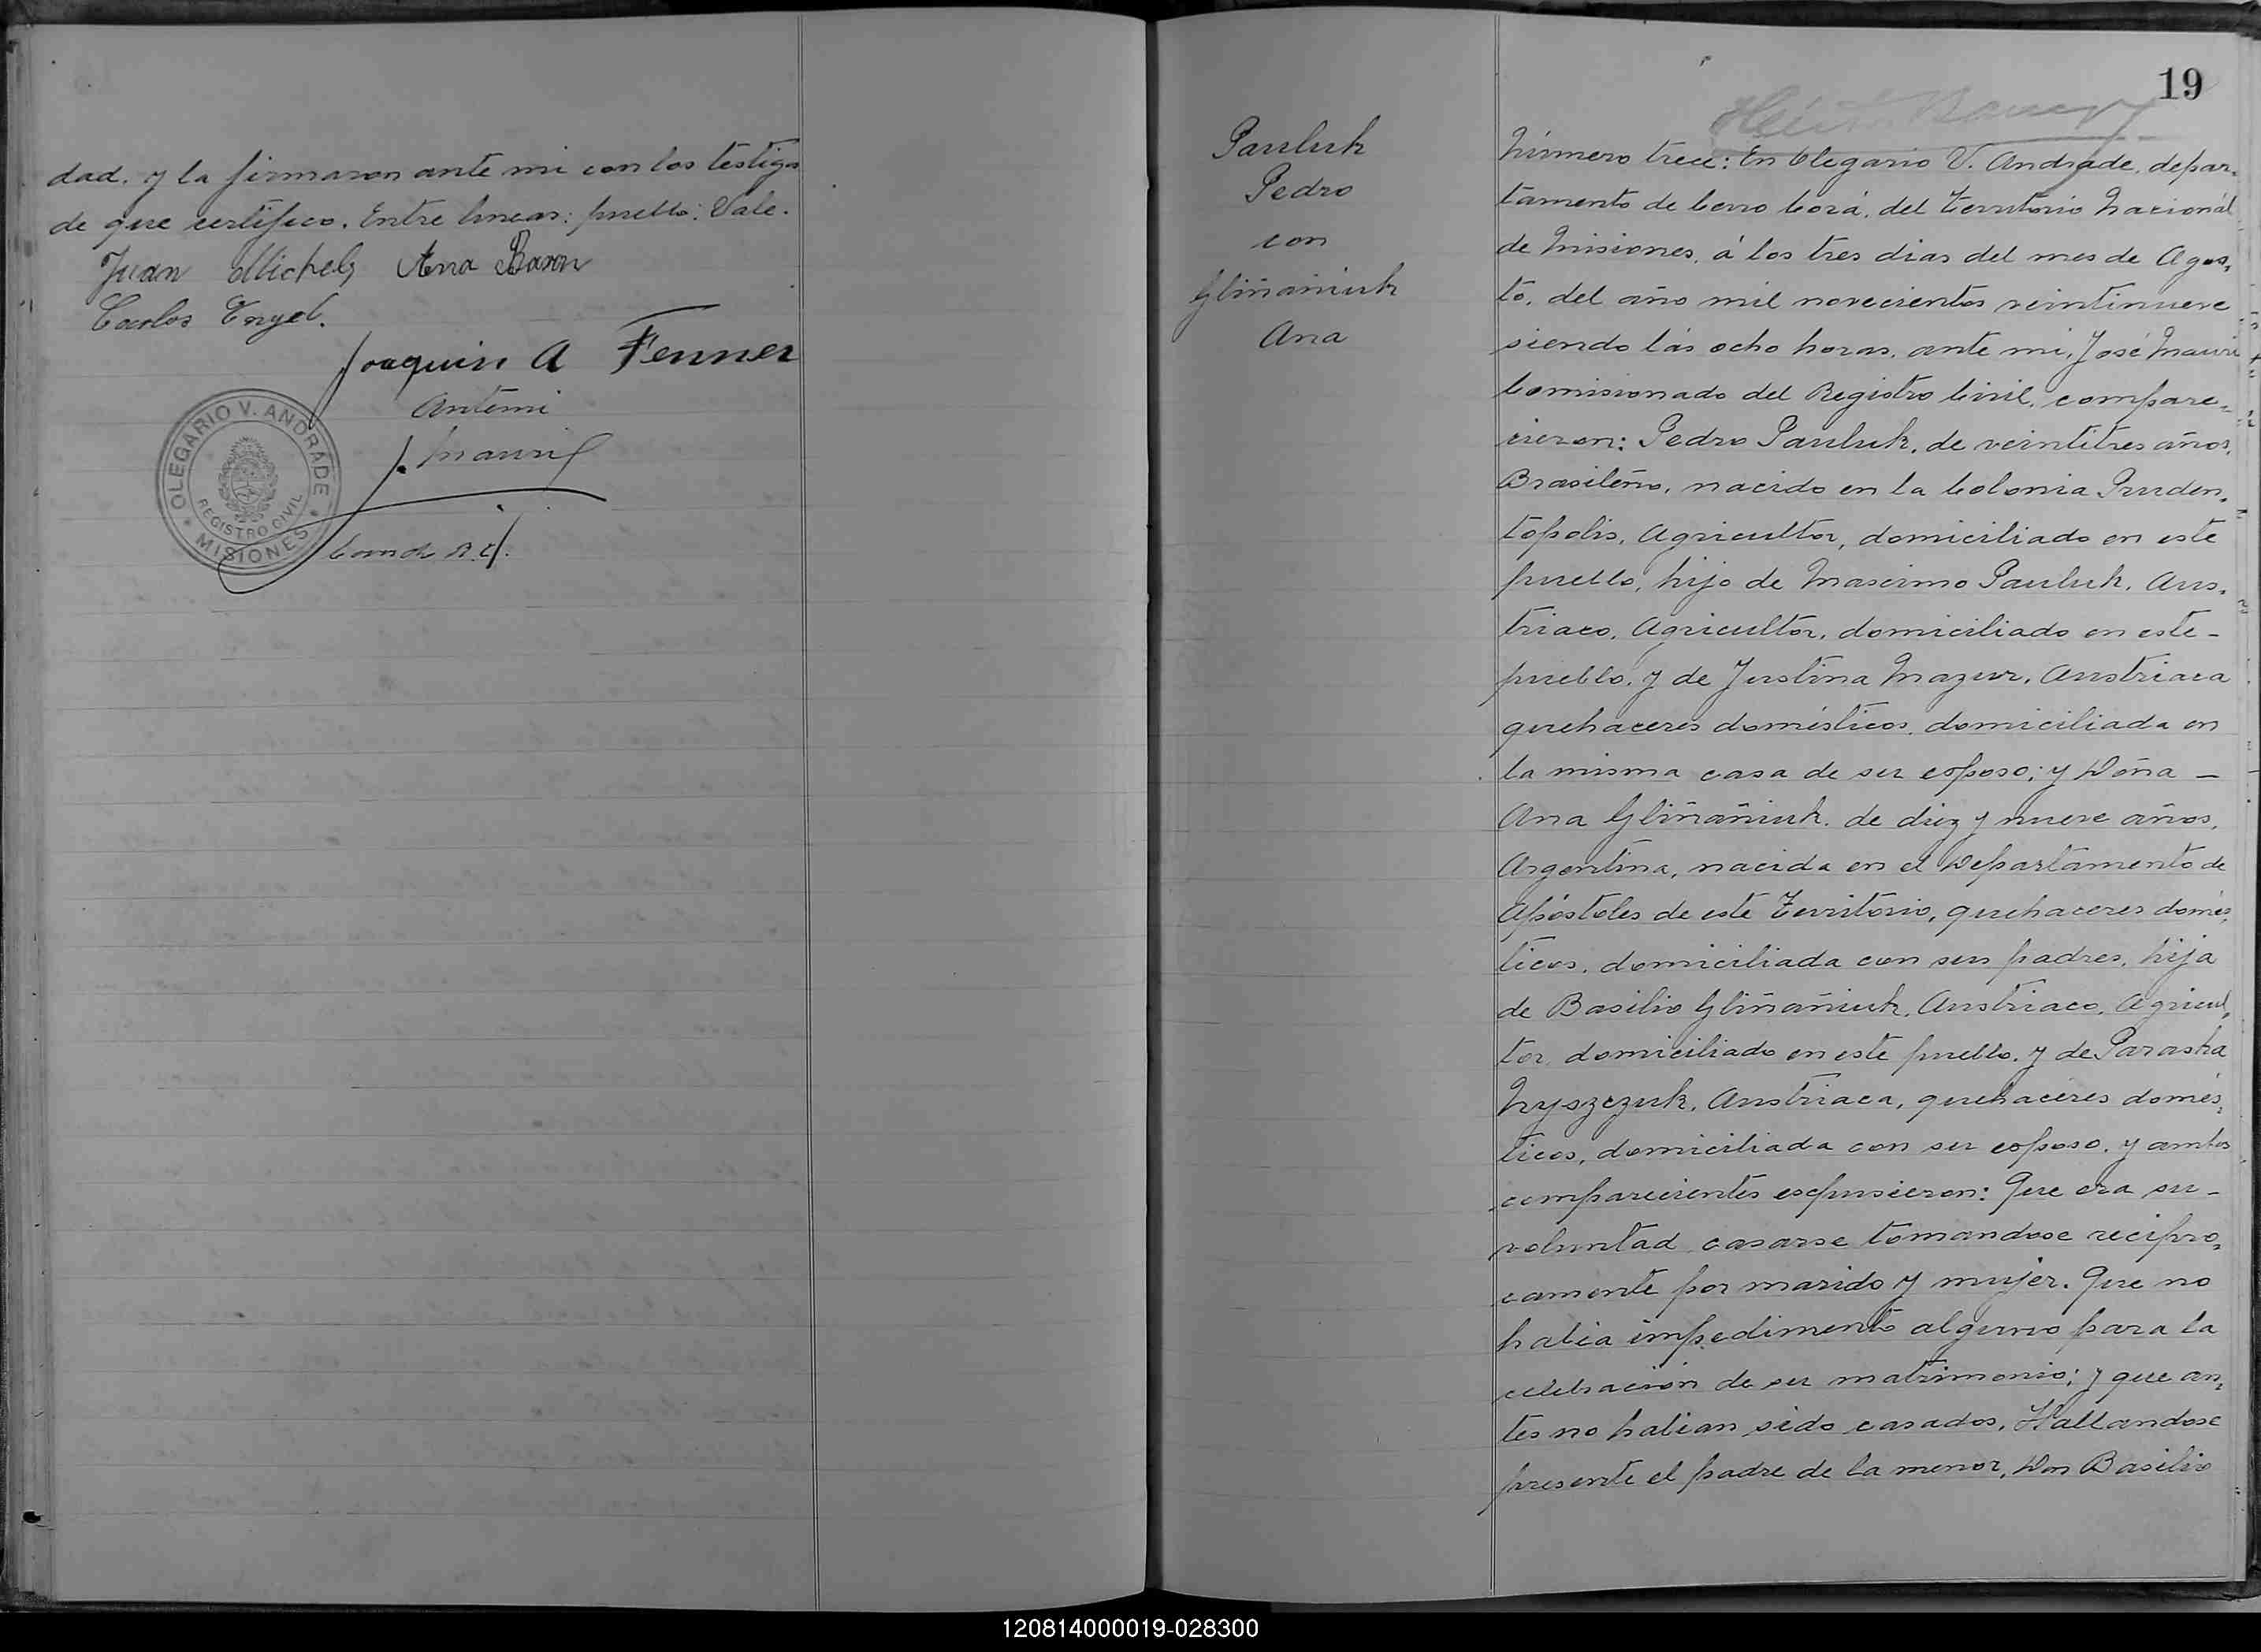 dad. y la firmaron ante mi con los testigos
de que certifico. Entre lineas: pueblo: Vale.
Juan Michels Ana Baron
Carlos Engel.
Joaquin A Fenner
Antemi
J. Mauri
OLEGARIO V. ANDRADE
REGISTRO CIVIL
* MISIONES *
19
Pauluk
Pedro
con
Gliñañiuk
Ana
Número trece: En Olegario V. Andrade, depar-
tamento de Cerro Corá, del Territorio Nacionál
de Misiones, á los tres dias del mes de Agos-
to, del año mil novecientos veintinueve
siendo las ocho horas, ante mi, José Mauri
Comisionado del Registro Civil, compare-
cieron: Pedro Pauluk, de veintitres años,
Brasileño, nacido en la Colonia Pruden-
topolis, Agricultor, domiciliado en este
pueblo, hijo de Mascimo Pauluk, Aus-
triaco, Agricultor, domiciliado en este-
pueblo, y de Justina Mazur, Austriaca
quehaceres domésticos, domiciliada en
la misma casa de su esposo; y Doña -
Ana Gliñañiuk, de diez y nueve años,
Argentina, nacida en el Departamento de
Apóstoles de este Territorio, quehaceres domés-
ticos, domiciliada con sus padres, hija
de Basilio Gliñañiuk, Austriaco, Agricul-
tor, domiciliado en este pueblo, y de Paraska
Nyszczuk, Austriaca, quehaceres domés-
ticos, domiciliada con su esposo, y ambos
comparecientes escpusieron: Que era su-
voluntad casarse tomandose recipro-
camente por marido y mujer. Que no
habia impedimento alguno para la
celebración de su matrimonio; y que an-
tes no habian sido casados, Hallandose
presente el padre de la menor, Don Basilio
120814000019-028300